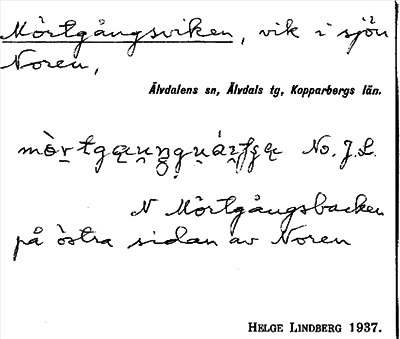 Mörtgångsviken, vik i sjön
Noren,
Älvdalens sn, Älvdals tg, Kopparbergs län.
No. J.L.
N Mörtgångsbacken
på östra sidan av Noren
HELGE LINDBERG 1937.